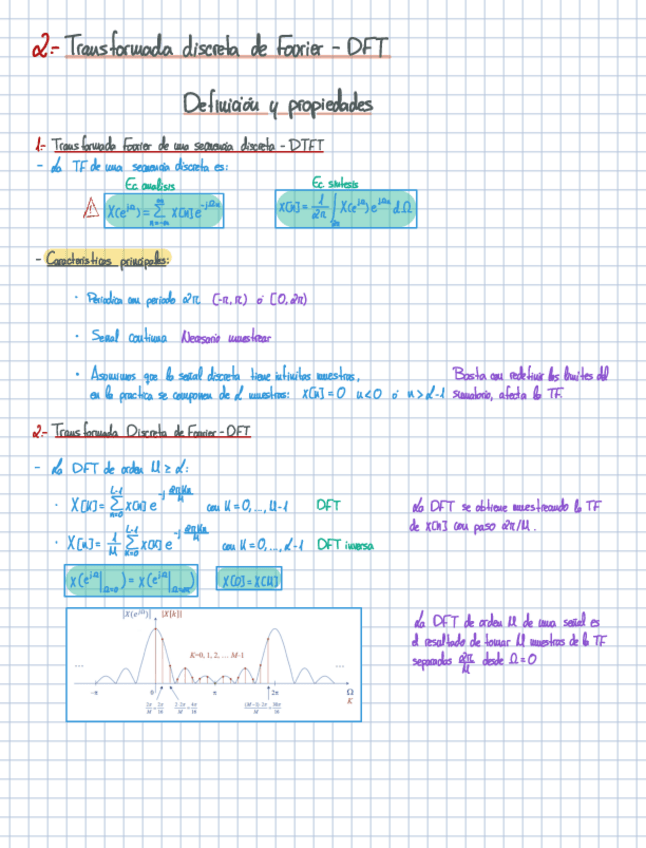 2.- Transformada discreta de Fourier - DFT
Definición y propiedades
1- Transformada Fourier de una secuencia discreta - DTFT
- La TF de una secuencia discreta es:
Ec analisis
Ec sintesis
X(e^{jΩ}) = ∑_{n=-∞}^{∞} x[n] e^{-jΩn}
x[n] = 1/2π ∫_{2π} X(e^{jΩ}) e^{jΩn} dΩ
- Características principales:
· Periodica con periodo 2π (-π, π) ó [0, 2π)
· Señal continua Necesario muestrear
· Asumimos que la señal discreta tiene infinitas muestras,
en la practica se componen de L muestras: x[n] = 0 n<0 ó n>L-1
Basta con redefinir los limites del
sumatorio, afecta la TF
2- Transformada Discreta de Fourier - DFT
- La DFT de orden M ≥ L:
· X[K] = ∑_{n=0}^{L-1} x[n] e^{-j 2πKn/M} con K=0,..., M-1 DFT
· X[n] = 1/M ∑_{K=0}^{L-1} x[K] e^{-j 2πKn/M} con K=0,..., L-1 DFT inversa
La DFT se obtiene muestreando la TF
de x[n] con paso 2π/M.
X(e^{jΩ}|_{Ω=0}) = X(e^{jΩ}|_{Ω=2π})
X[0] = X[M]
|X(e^{jΩ})| |X[k]|
K=0, 1, 2, ... M-1
... ...
-π 0 π 2π Ω
K
2π/M = 2π/16 2·2π/M = 4π/16 (M-1)·2π/M = 30π/16
La DFT de orden M de una señal es
el resultado de tomar M muestras de la TF
separadas 2π/M desde Ω=0